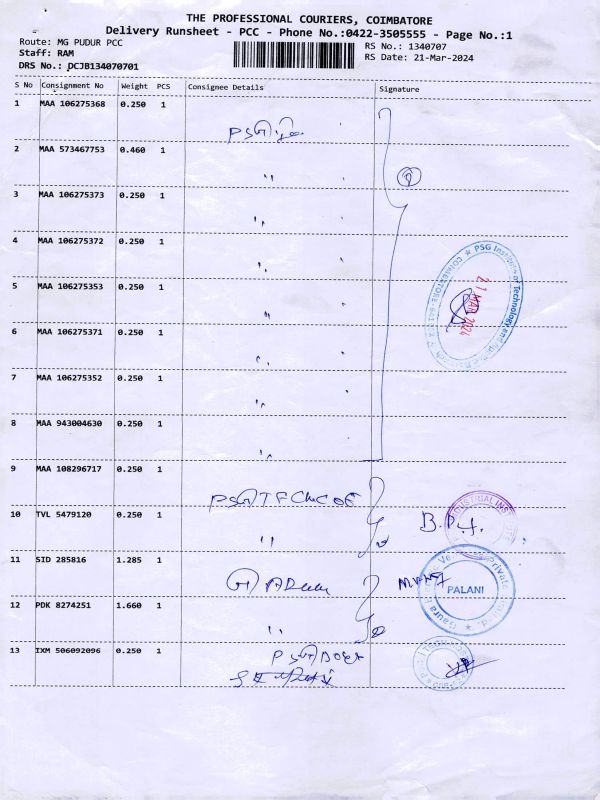 THE PROFESSIONAL COURIERS, COIMBATORE
Delivery Runsheet - PCC - Phone No.:0422-3505555 - Page No.:1
Route: MG PUDUR PCC
RS No.: 1340707
Staff: RAM
RS Date: 21-Mar-2024
DRS No.: DCJB134070701
S No Consignment No Weight PCS Consignee Details Signature
1 MAA 106275368 0.250 1
2 MAA 573467753 0.460 1 "
3 MAA 106275373 0.250 1 "
4 MAA 106275372 0.250 1 "
5 MAA 106275353 0.250 1 "
6 MAA 106275371 0.250 1 "
7 MAA 106275352 0.250 1 "
8 MAA 943004630 0.250 1 "
PSG Institute of Technology and Applied Research
COIMBATORE
21 MAR 2024
9 MAA 108296717 0.250 1
10 TVL 5479120 0.250 1 "
INDUSTRIAL INS
11 SID 285816 1.285 1
PALANI
Private Limited
12 PDK 8274251 1.660 1 "
13 IXM 506092096 0.250 1